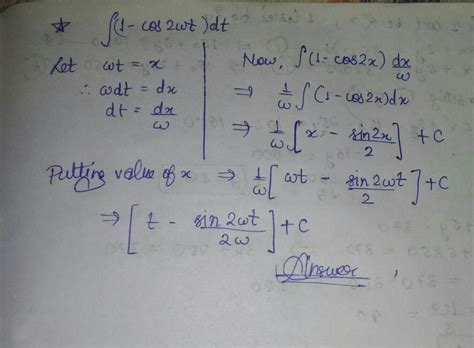 ☆ ∫(1 - cos2ωt)dt
Let ωt = x
∴ ωdt = dx
dt = dx/ω
Now, ∫(1 - cos2x) dx/ω
⇒ 1/ω ∫(1 - cos2x)dx
⇒ 1/ω [x - sin2x/2] + C
Putting value of x ⇒ 1/ω [ωt - sin2ωt/2] + C
⇒ [t - sin2ωt/2ω] + C
Answer